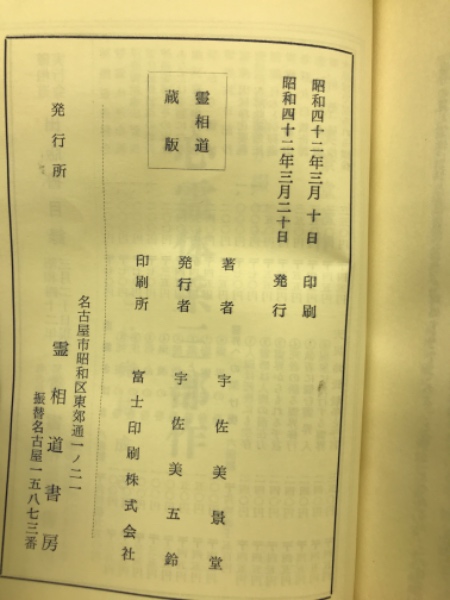 昭和四十二年三月十日 印刷
昭和四十二年三月二十日 発行
霊相道
蔵版
著者 宇佐美景堂
発行者 宇佐美五鈴
印刷所 富士印刷株式会社
発行所
名古屋市昭和区東郊通一ノ二一
霊相道書房
振替名古屋一五八七三番